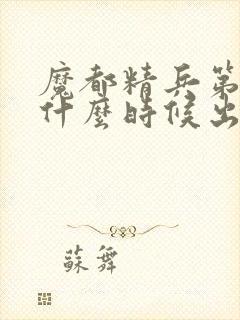 魔都精兵第
什麼時候出
蘇舞